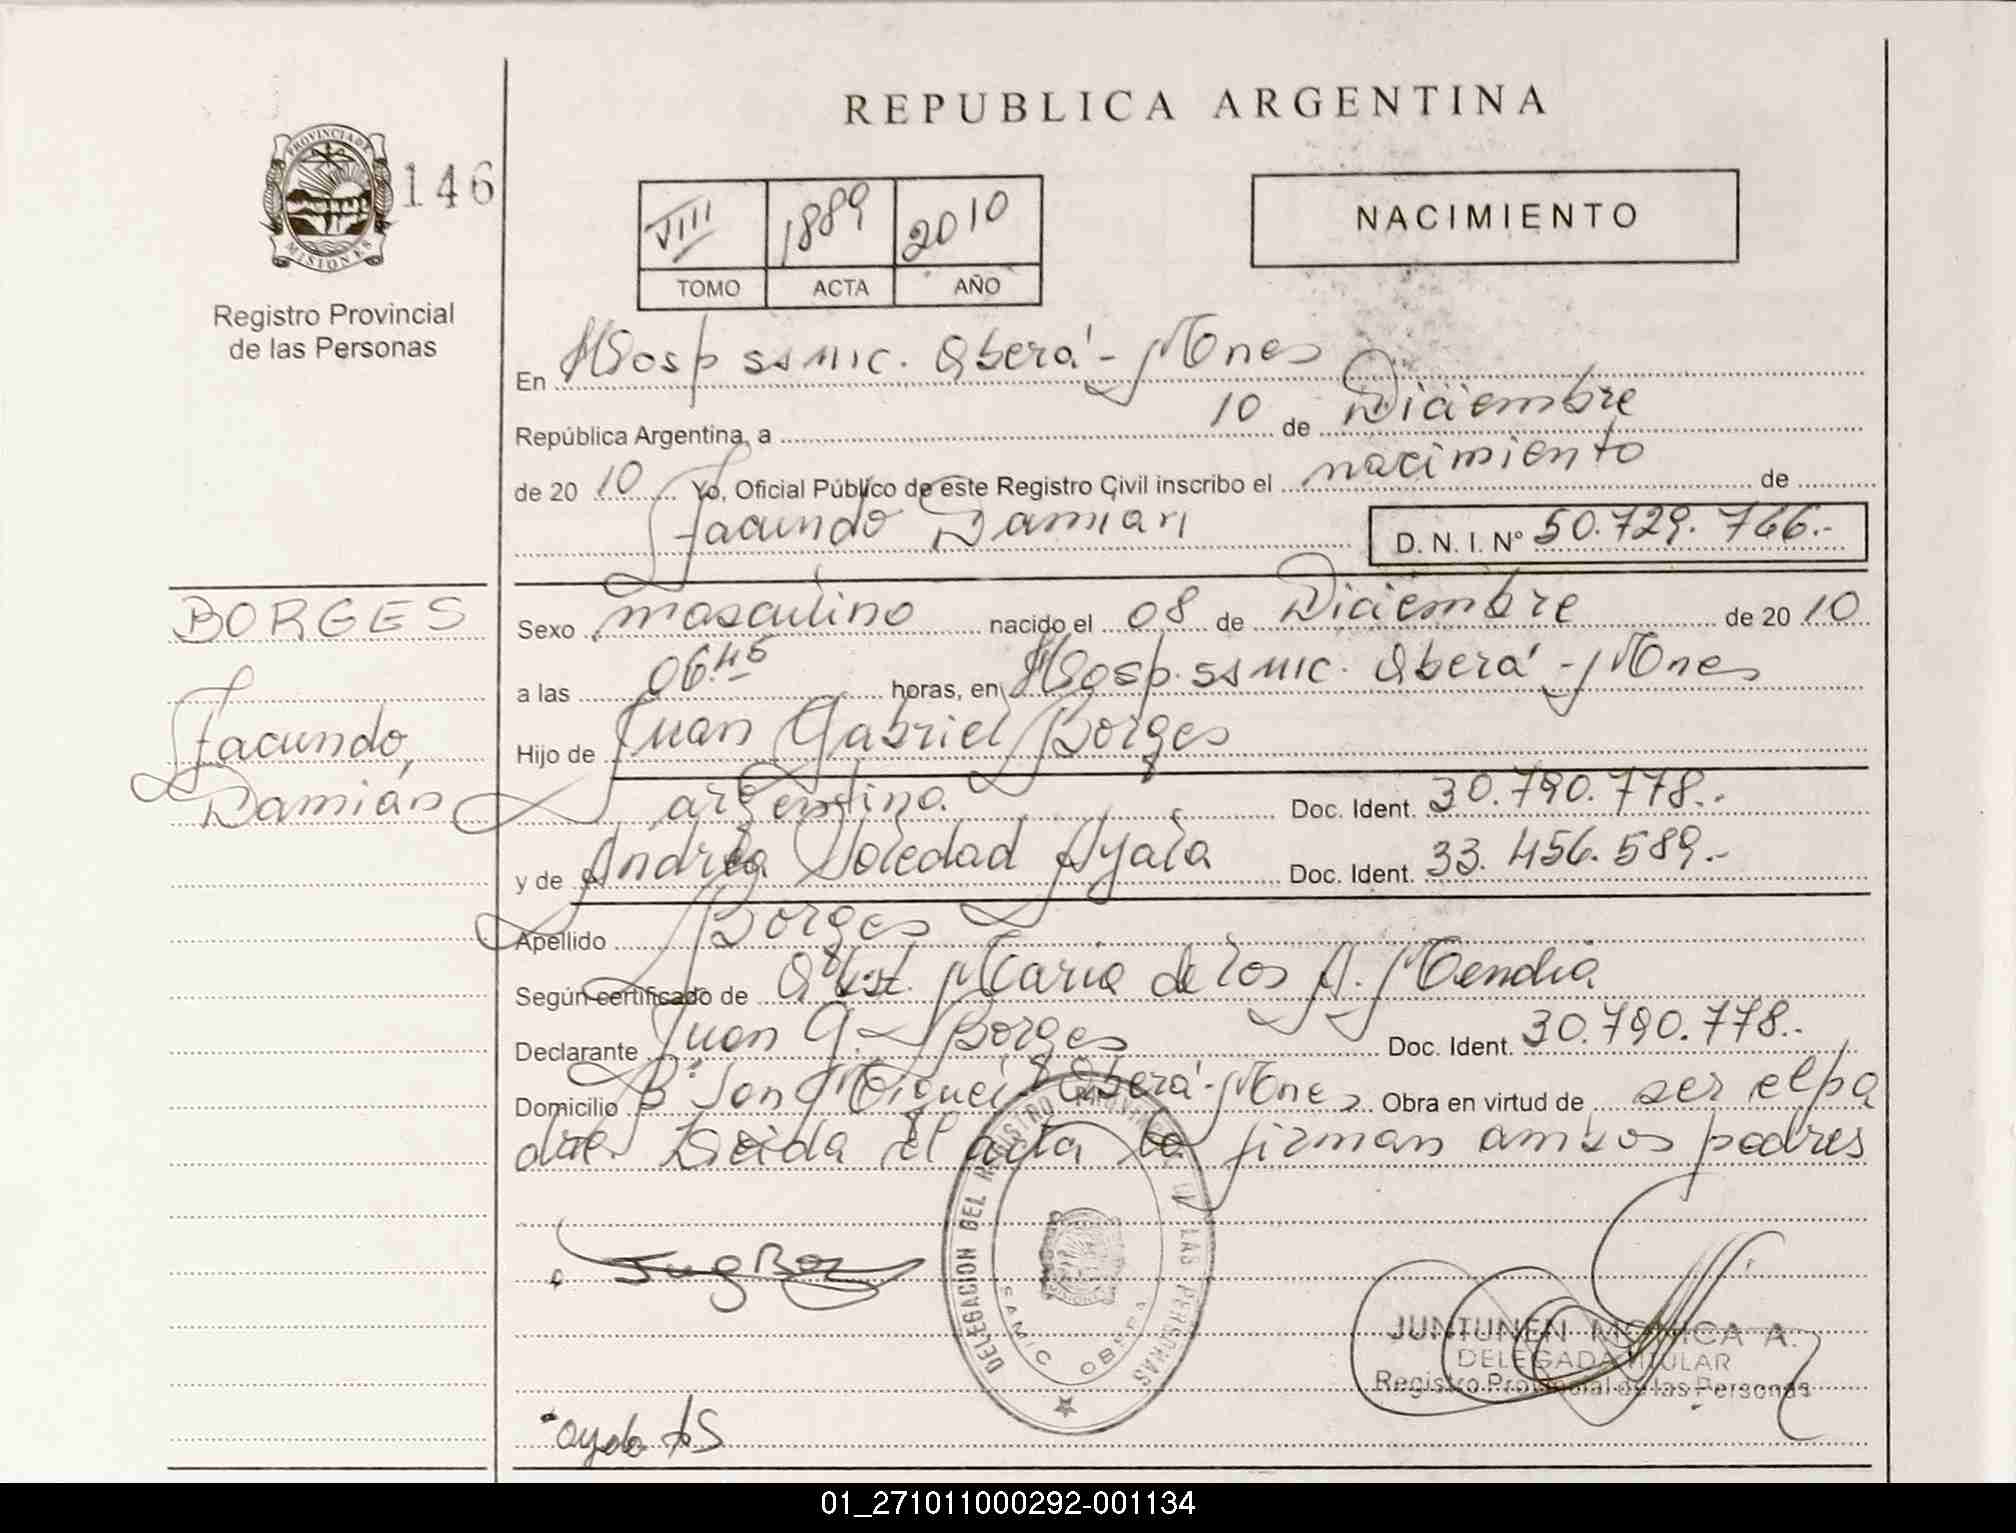 REPUBLICA ARGENTINA
PROVINCIA DE
MISIONES
146
Registro Provincial
de las Personas
VIII 1889 2010
TOMO ACTA AÑO
NACIMIENTO
En Hosp ssmic. Oberá - Mnes
República Argentina, a 10 de Diciembre
de 20 10 Yo, Oficial Público de este Registro Civil inscribo el nacimiento de
Facundo Damian D. N. I. Nº 50.729.766.-
BORGES
Facundo,
Damián
Sexo masculino nacido el 08 de Diciembre de 20 10
a las 06.45 horas, en Hosp. ssmic. Oberá - Mnes
Hijo de Juan Gabriel Borges
argentino. Doc. Ident. 30.790.778.-
y de Andrea Soledad Ayala Doc. Ident. 33.456.589.-
Apellido Borges
Según certificado de Obst. Maria de los A. Mendia
Declarante Juan G. Borges Doc. Ident. 30.790.778.-
Domicilio Bº San Miguel Oberá - Mnes Obra en virtud de ser el pa
dre. Leida el acta la firman ambos padres
DELEGACION DEL REGISTRO PROVINCIAL DE LAS PERSONAS
SAMIC OBERA
JUNTUNEN MONICA A.
DELEGADA TITULAR
Registro Provincial de las Personas
Ayala AS
01_271011000292-001134